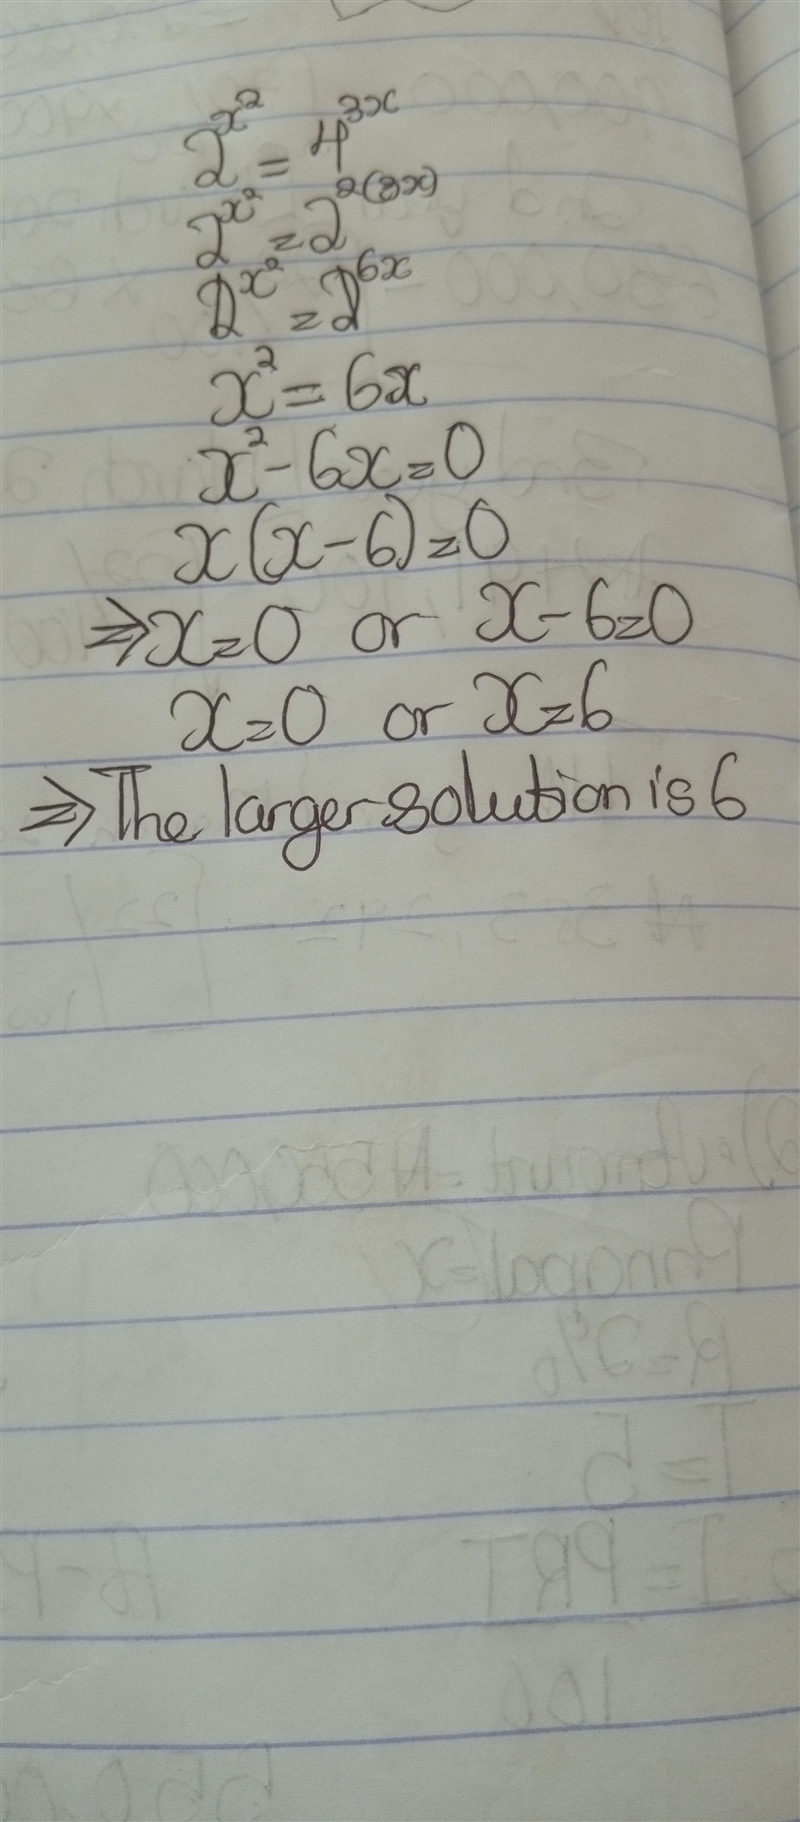 2^x^2 = 4^3x
2^x^2 = 2^2(3x)
2^x^2 = 2^6x
x^2 = 6x
x^2 - 6x = 0
x(x - 6) = 0
⇒ x = 0 or x - 6 = 0
x = 0 or x = 6
⇒ The larger solution is 6